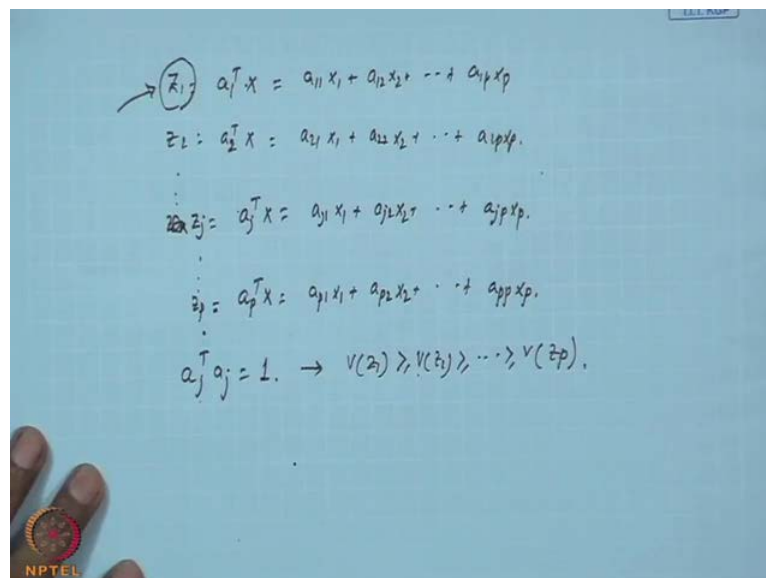 I.I.T. KGP
z₁ = a₁ᵀ x = a₁₁ x₁ + a₁₂ x₂ + ··· + a₁ₚ xₚ
z₂ = a₂ᵀ x = a₂₁ x₁ + a₂₂ x₂ + ··· + a₂ₚ xₚ.
zⱼ = aⱼᵀ x = aⱼ₁ x₁ + aⱼ₂ x₂ + ··· + aⱼₚ xₚ.
zₚ = aₚᵀ x = aₚ₁ x₁ + aₚ₂ x₂ + ··· + aₚₚ xₚ.
aⱼᵀ aⱼ = 1. → V(z₁) ≥ V(z₂) ≥ ··· ≥ V(zₚ).
NPTEL